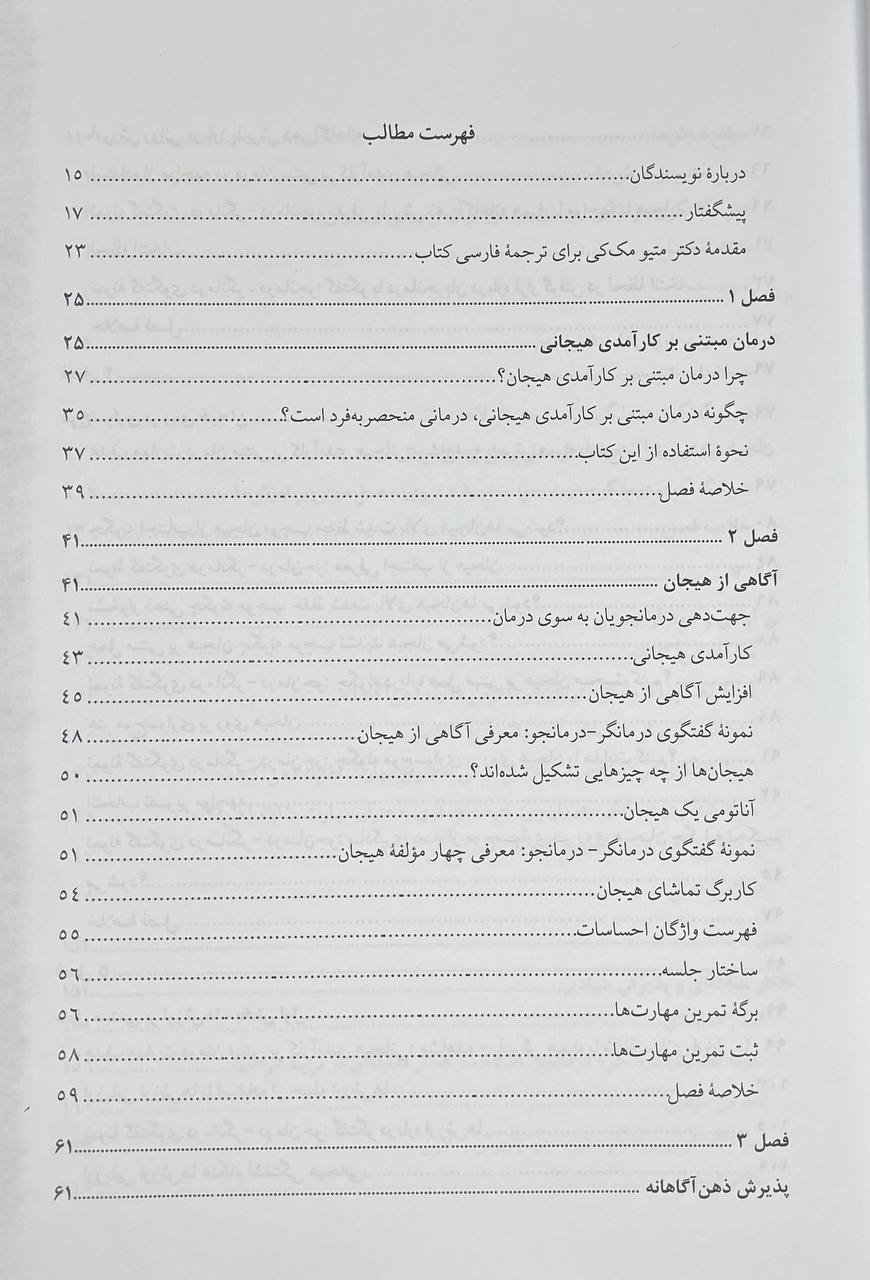 فهرست مطالب
دربارهٔ نویسندگان .......... ۱۵
پیشگفتار .......... ۱۷
مقدمهٔ دکتر متیو مک‌کی برای ترجمهٔ فارسی کتاب .......... ۲۳
فصل ۱ .......... ۲۵
درمان مبتنی بر کارآمدی هیجانی .......... ۲۵
چرا درمان مبتنی بر کارآمدی هیجان؟ .......... ۲۷
چگونه درمان مبتنی بر کارآمدی هیجانی، درمانی منحصربه‌فرد است؟ .......... ۳۵
نحوهٔ استفاده از این کتاب .......... ۳۷
خلاصهٔ فصل .......... ۳۹
فصل ۲ .......... ۴۱
آگاهی از هیجان .......... ۴۱
جهت‌دهی درمانجویان به سوی درمان .......... ۴۱
کارآمدی هیجانی .......... ۴۳
افزایش آگاهی از هیجان .......... ۴۵
نمونهٔ گفتگوی درمانگر-درمانجو: معرفی آگاهی از هیجان .......... ۴۸
هیجان‌ها از چه چیزهایی تشکیل شده‌اند؟ .......... ۵۰
آناتومی یک هیجان .......... ۵۱
نمونهٔ گفتگوی درمانگر- درمانجو: معرفی چهار مؤلفهٔ هیجان .......... ۵۱
کاربرگ تماشای هیجان .......... ۵۴
فهرست واژگان احساسات .......... ۵۵
ساختار جلسه .......... ۵۶
برگهٔ تمرین مهارت‌ها .......... ۵۶
ثبت تمرین مهارت‌ها .......... ۵۸
خلاصهٔ فصل .......... ۵۹
فصل ۳ .......... ۶۱
پذیرش ذهن‌آگاهانه .......... ۶۱